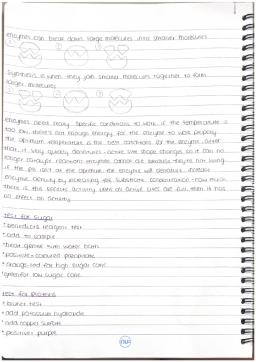 enzymes can break down large molecules into smaller molecules
① ② ③
Synthesis is when they join smaller molecules together to form
larger molecules
① ② ③
enzymes need really specific conditions to work. if the temperature is
too low, there's not enough energy for the enzyme to work properly
the optimum temperature is the best conditions for the enzyme. after
that, it very quickly denatures - active site shape changes so it can no
longer catalyse reactions. enzymes cannot die because they're not living
if the pH isn't at the optimum the enzyme will denature. increase
enzyme activity by increasing the substrate concentration - how much
there is. this effects activity until all active sites are full, then it has
no effect on activity
test for Sugar
• benedicts reagent test
• add to sample
• heat gently with water bath
• positive = coloured precipitate
• orange-red for high sugar conc
• green for low sugar conc
test for proteins
• biuret test
• add potassium hydroxide
• add copper sulfate
• positive = purple